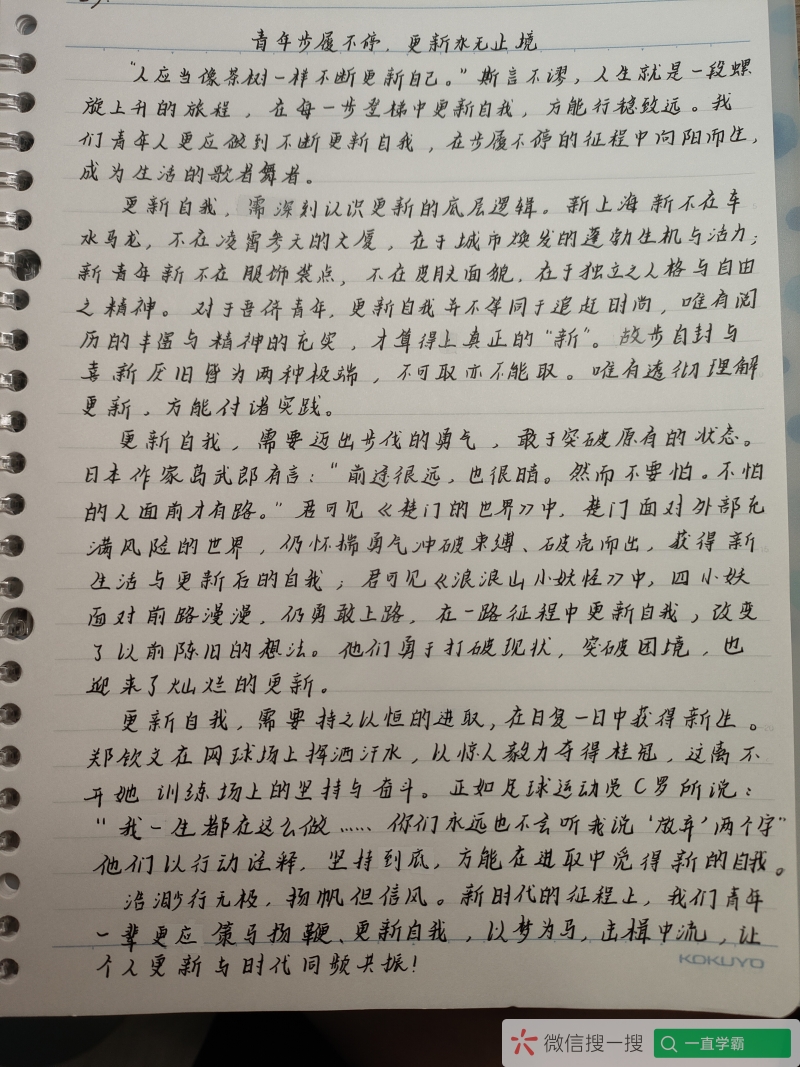 青年步履不停,更新永无止境
“人应当像茶树一样不断更新自己。”斯言不谬,人生就是一段螺
旋上升的旅程,在每一步登梯中更新自我,方能行稳致远。我
们青年人更应做到不断更新自我,在步履不停的征程中向阳而生,
成为生活的歌者舞者。
更新自我,需深刻认识更新的底层逻辑。新上海新不在车
水马龙,不在凌霄参天的大厦,在于城市焕发的蓬勃生机与活力;
新青年新不在服饰装点,不在皮肤面貌,在于独立之人格与自由
之精神。对于吾侪青年,更新自我并不等同于追赶时尚,唯有阅
历的丰富与精神的充实,才算得上真正的“新”。故步自封与
喜新厌旧皆为两种极端,不可取亦不能取。唯有透彻理解
更新,方能付诸实践。
更新自我,需要迈出步伐的勇气,敢于突破原有的状态。
日本作家岛武郎有言:“前途很远,也很暗。然而不要怕。不怕
的人面前才有路。”君可见《楚门的世界》中,楚门面对外部充
满风险的世界,仍怀揣勇气冲破束缚、破壳而出,获得新
生活与更新后的自我;君可见《浪浪山小妖怪》中,四小妖
面对前路漫漫,仍勇敢上路,在一路征程中更新自我,改变
了以前陈旧的想法。他们勇于打破现状,突破困境,也
迎来了灿烂的更新。
更新自我,需要持之以恒的进取,在日复一日中获得新生。
郑钦文在网球场上挥洒汗水,以惊人毅力夺得桂冠,这离不
开她训练场上的坚持与奋斗。正如足球运动员C罗所说:
“我一生都在这么做……你们永远也不会听我说‘放弃’两个字”
他们以行动诠释,坚持到底,方能在进取中觅得新的自我。
沿溯行无极,扬帆但信风。新时代的征程上,我们青年
一辈更应策马扬鞭、更新自我,以梦为马,击楫中流,让
个人更新与时代同频共振!
KOKUYO
微信搜一搜 一直学霸